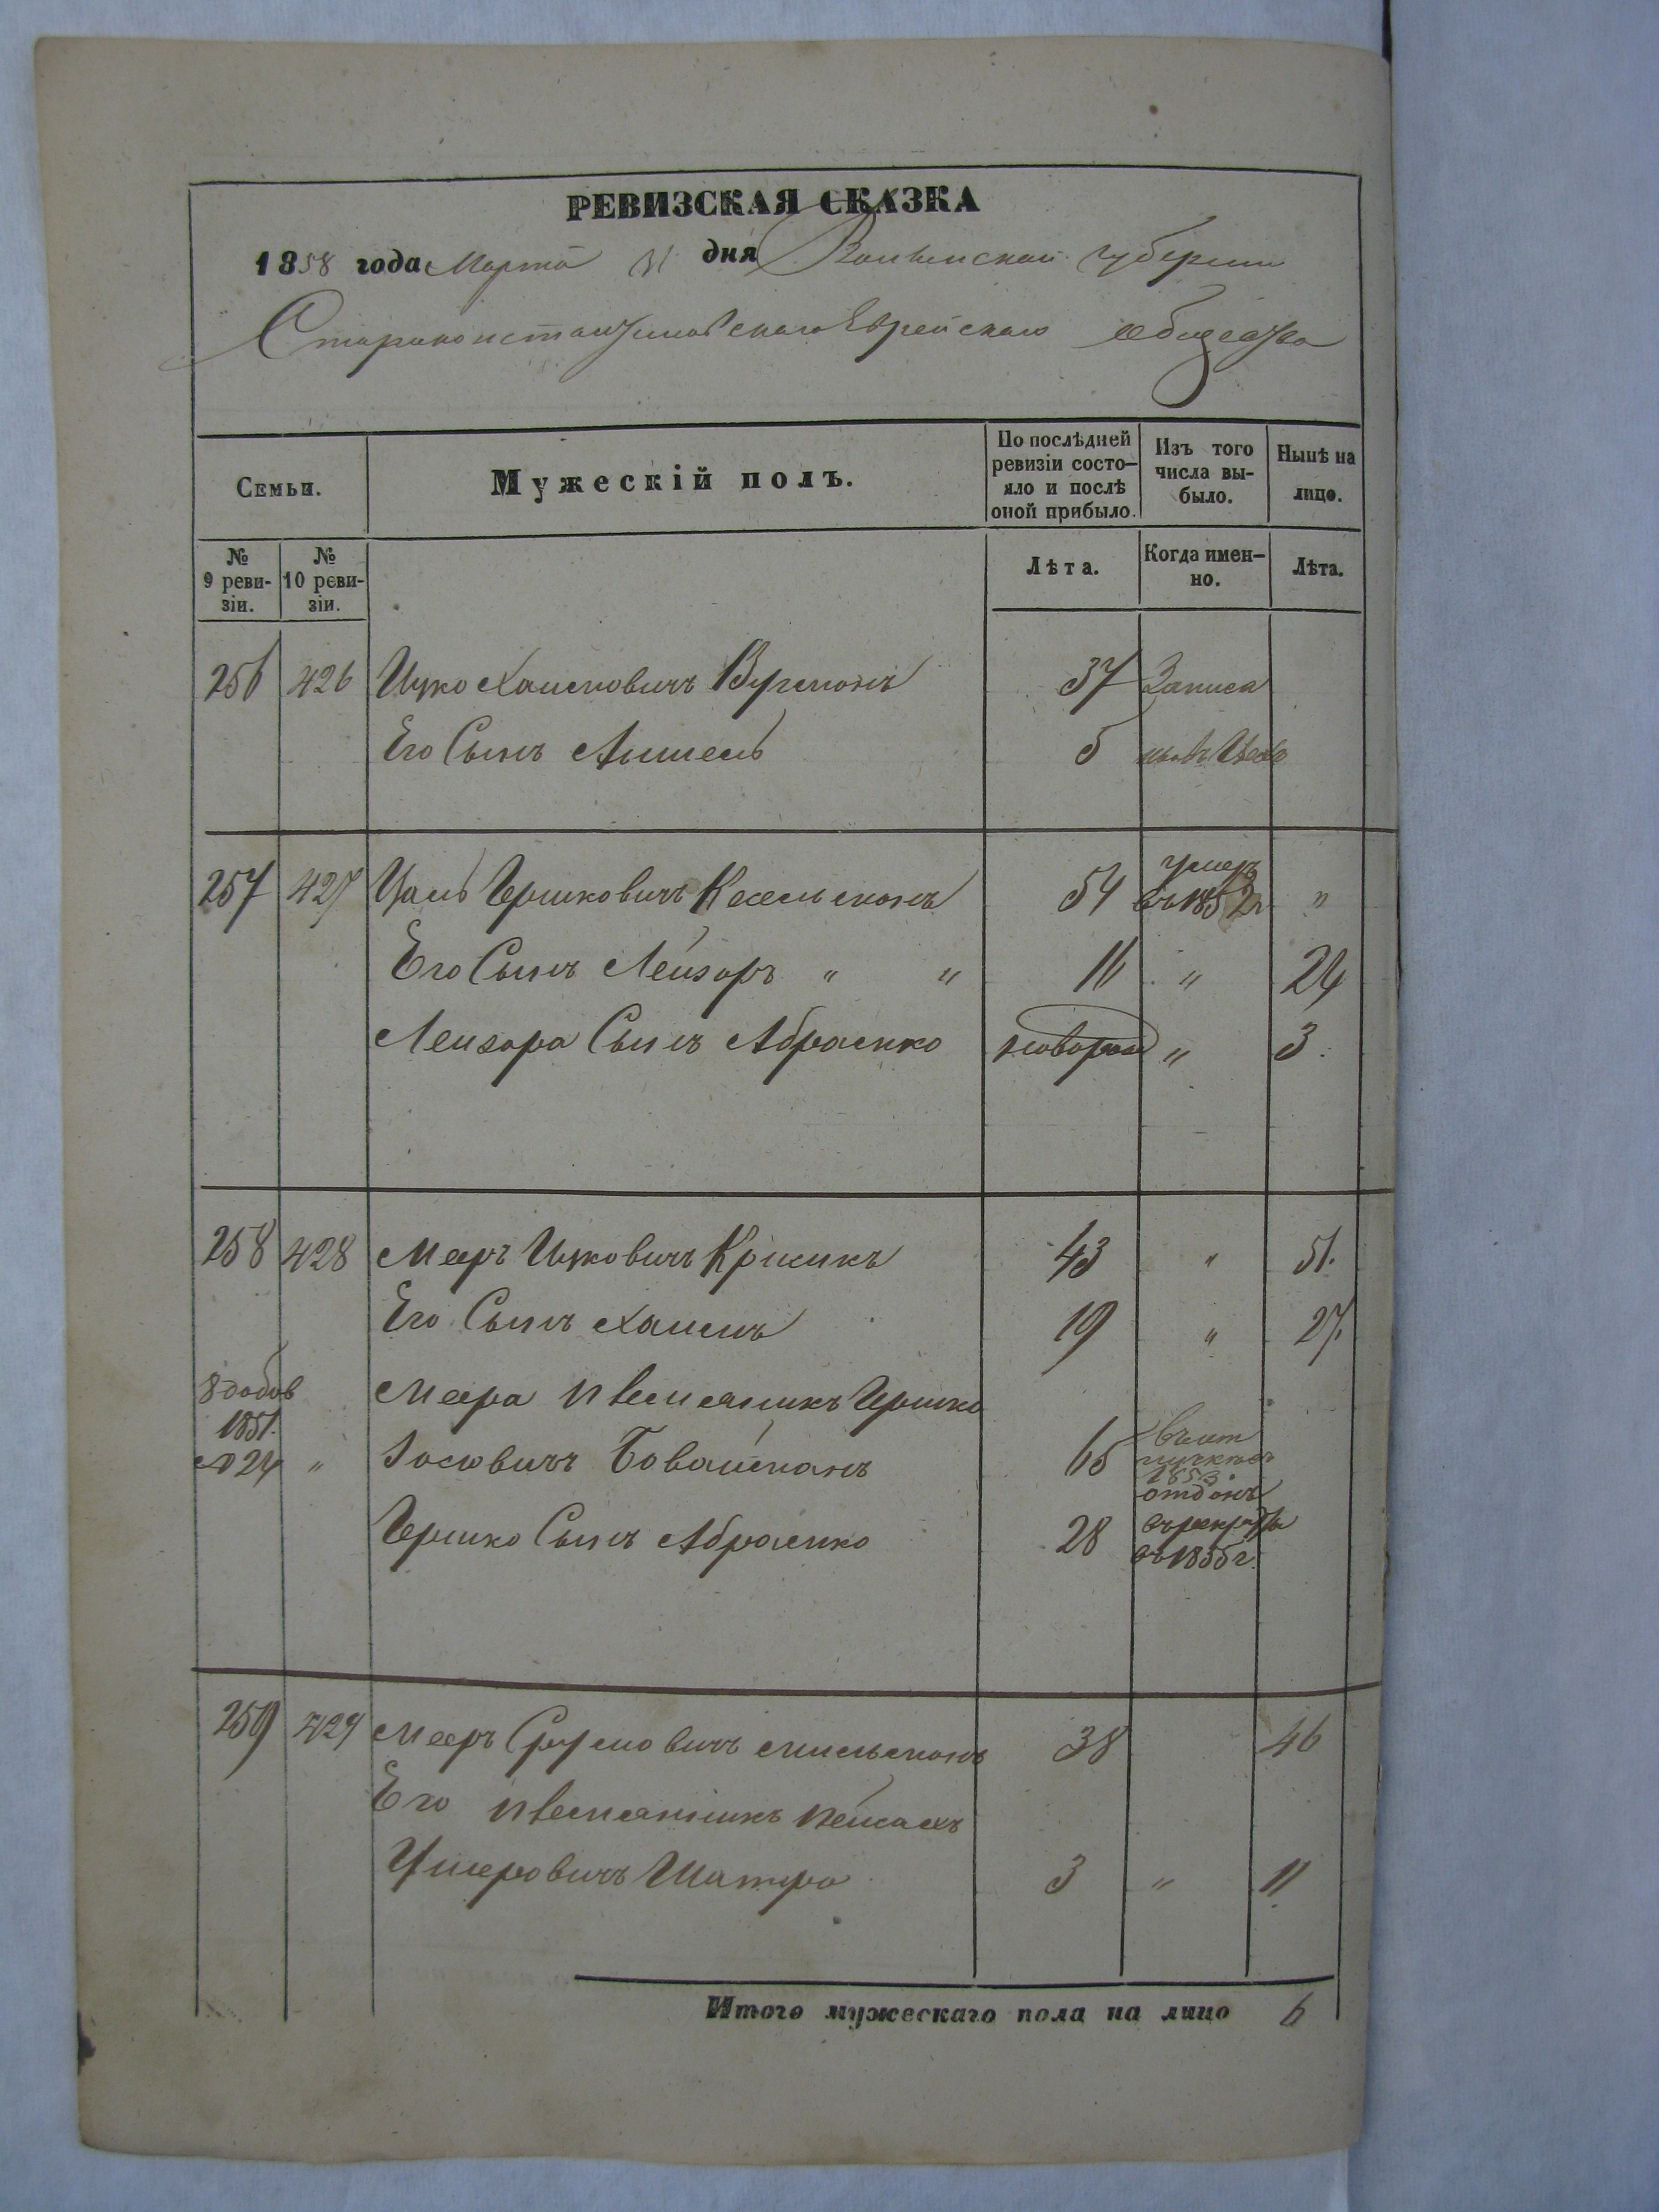 РЕВИЗСКАЯ СКАЗКА
1858 года Марта 31 дня Волынской губернии
Староконстантиновскаго Еврейскаго общества
Семьи.
Мужескій полъ.
По послѣдней ревизіи состо-яло и послѣ оной прибыло.
Изъ того числа вы-было.
Нынѣ на лицо.
№ 9 реви-зіи.
№ 10 реви-зіи.
Лѣта.
Когда имен-но.
Лѣта.
256 426 Ицко Хаимовичъ 37 Записа
Его Сынъ Аншель 5
257 427 Гершковичъ Кесельманъ 54 умеръ въ 1852 г "
Его Сынъ Лейзоръ " " 16 " 24
Лейзора Сынъ Абрамко новорож " 3.
258 428 Мееръ Ицковичъ Крикикъ 43 " 51.
Его Сынъ Хаимъ 19 " 27.
8 добов Меера племянникъ Гершко
1851.
№ 24 " Іосіовичъ Бовайманъ 65 1853.
Гершко Сынъ Абрамко 28 отданъ въ рекруты въ 1855 г.
259 429 Мееръ Сруліовичъ 38 46
Его племянникъ Пейсахъ
Ушеровичъ Шатро 3 " 11
Итого мужескаго пола на лицо 6